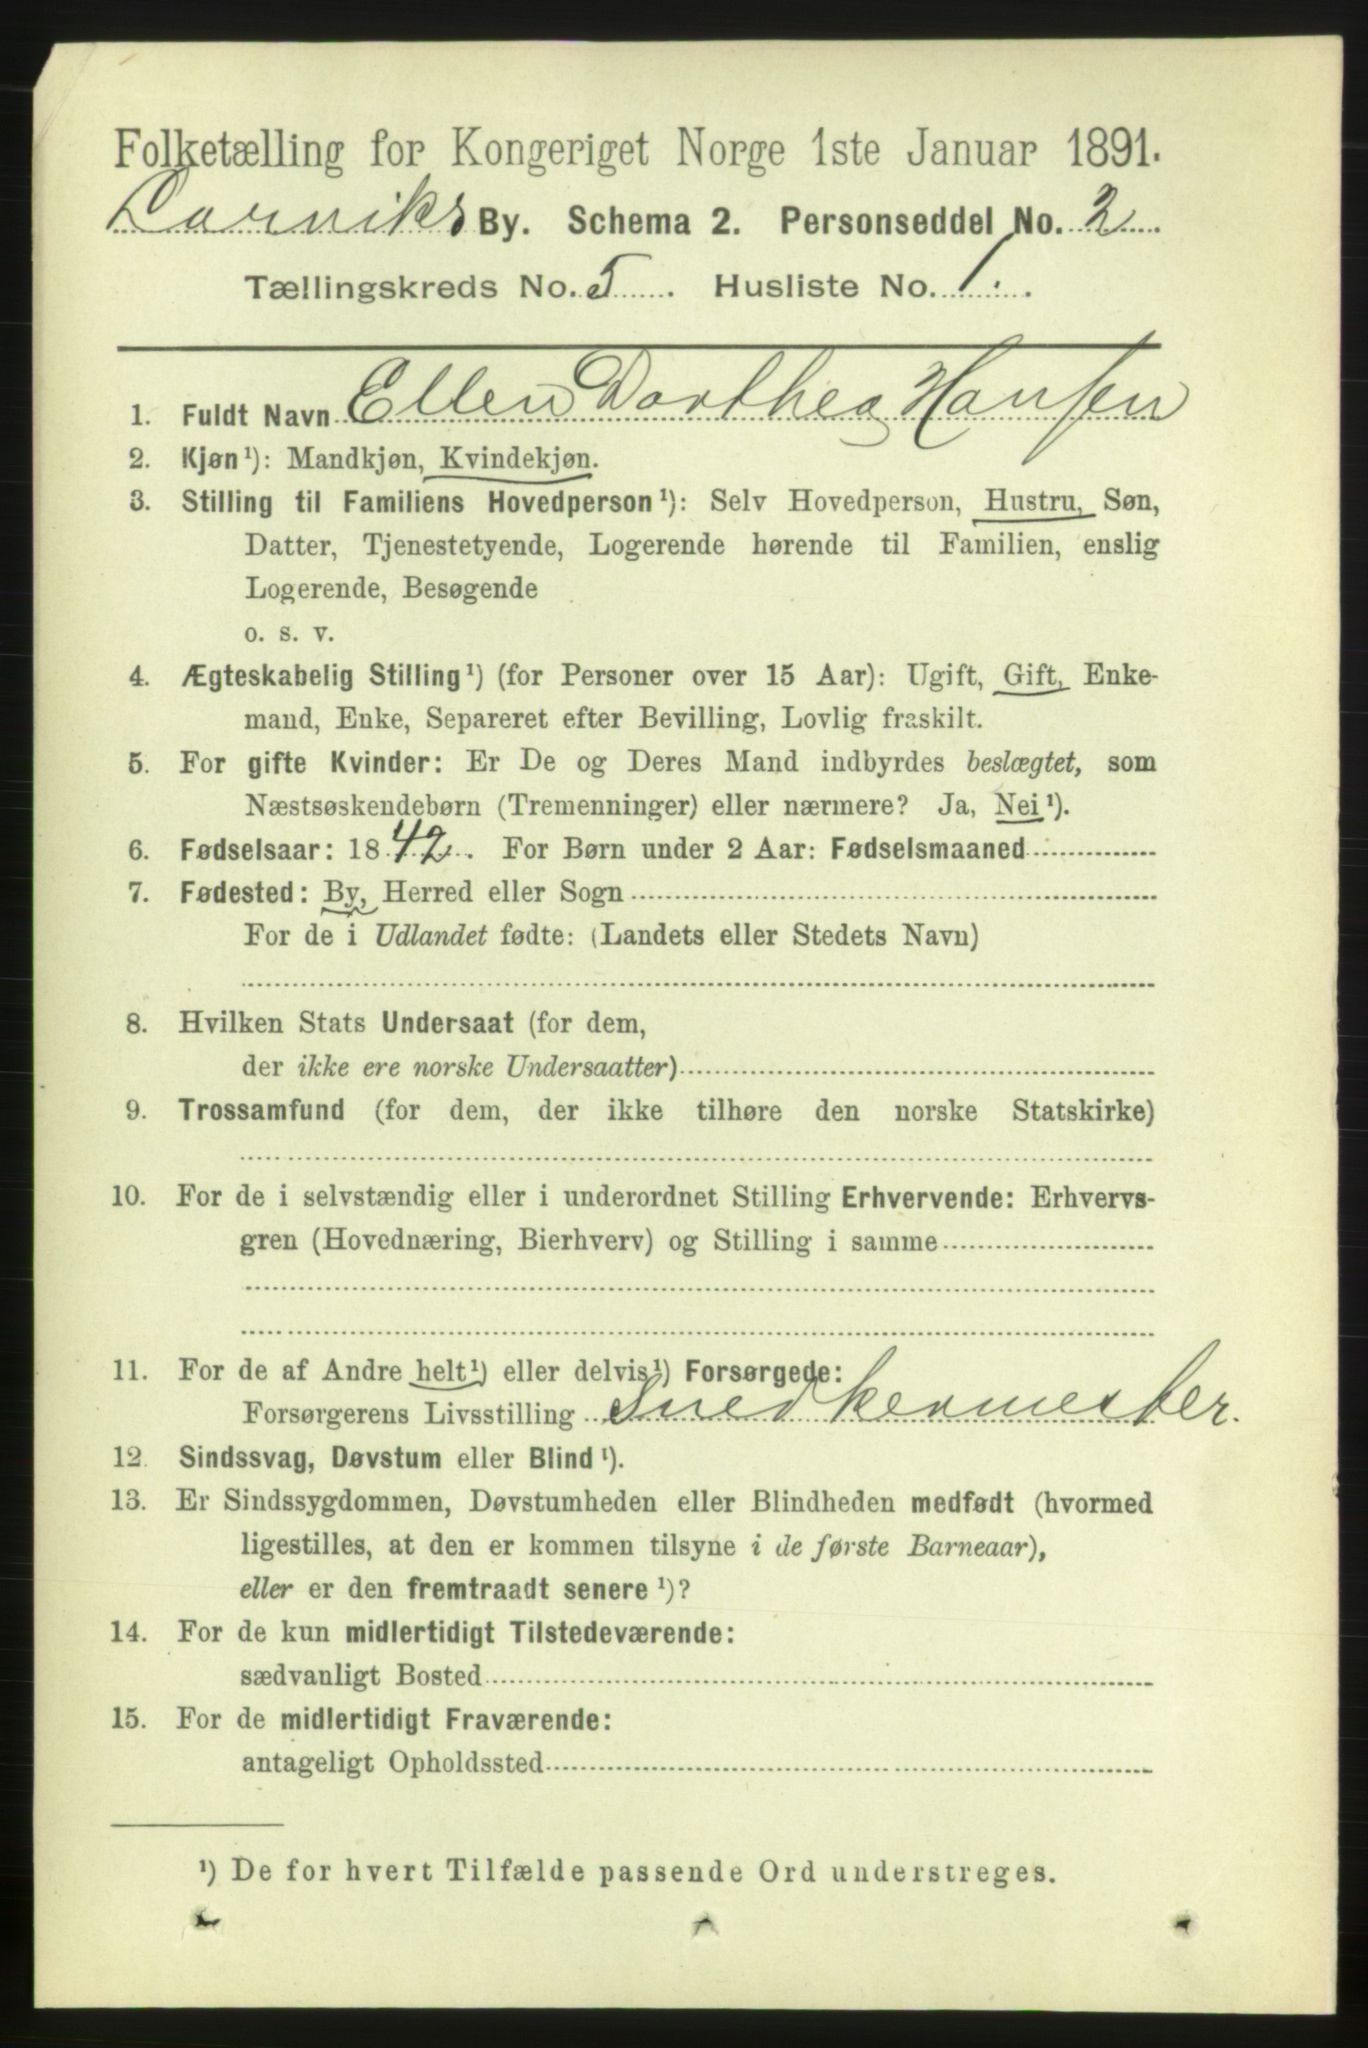 Folketælling for Kongeriget Norge 1ste Januar 1891.
Larviks By. Schema 2. Personseddel No. 2
Tællingskreds No. 5. Husliste No. 1.
1. Fuldt Navn Ellen Dorthea Hansen
2. Kjøn¹): Mandkjøn, Kvindekjøn.
3. Stilling til Familiens Hovedperson¹): Selv Hovedperson, Hustru, Søn,
Datter, Tjenestetyende, Logerende hørende til Familien, enslig
Logerende, Besøgende
o. s. v.
4. Ægteskabelig Stilling¹) (for Personer over 15 Aar): Ugift, Gift, Enke-
mand, Enke, Separeret efter Bevilling, Lovlig fraskilt.
5. For gifte Kvinder: Er De og Deres Mand indbyrdes beslægtet, som
Næstsøskendebørn (Tremenninger) eller nærmere? Ja, Nei¹).
6. Fødselsaar: 1842. For Børn under 2 Aar: Fødselsmaaned
7. Fødested: By, Herred eller Sogn
For de i Udlandet fødte: (Landets eller Stedets Navn)
8. Hvilken Stats Undersaat (for dem,
der ikke ere norske Undersaatter)
9. Trossamfund (for dem, der ikke tilhøre den norske Statskirke)
10. For de i selvstændig eller i underordnet Stilling Erhvervende: Erhvervs-
gren (Hovednæring, Bierhverv) og Stilling i samme
11. For de af Andre helt¹) eller delvis¹) Forsørgede:
Forsørgerens Livsstilling Snedkermester.
12. Sindssvag, Døvstum eller Blind¹).
13. Er Sindssygdommen, Døvstumheden eller Blindheden medfødt (hvormed
ligestilles, at den er kommen tilsyne i de første Barneaar),
eller er den fremtraadt senere¹)?
14. For de kun midlertidigt Tilstedeværende:
sædvanligt Bosted
15. For de midlertidigt Fraværende:
antageligt Opholdssted
¹) De for hvert Tilfælde passende Ord understreges.